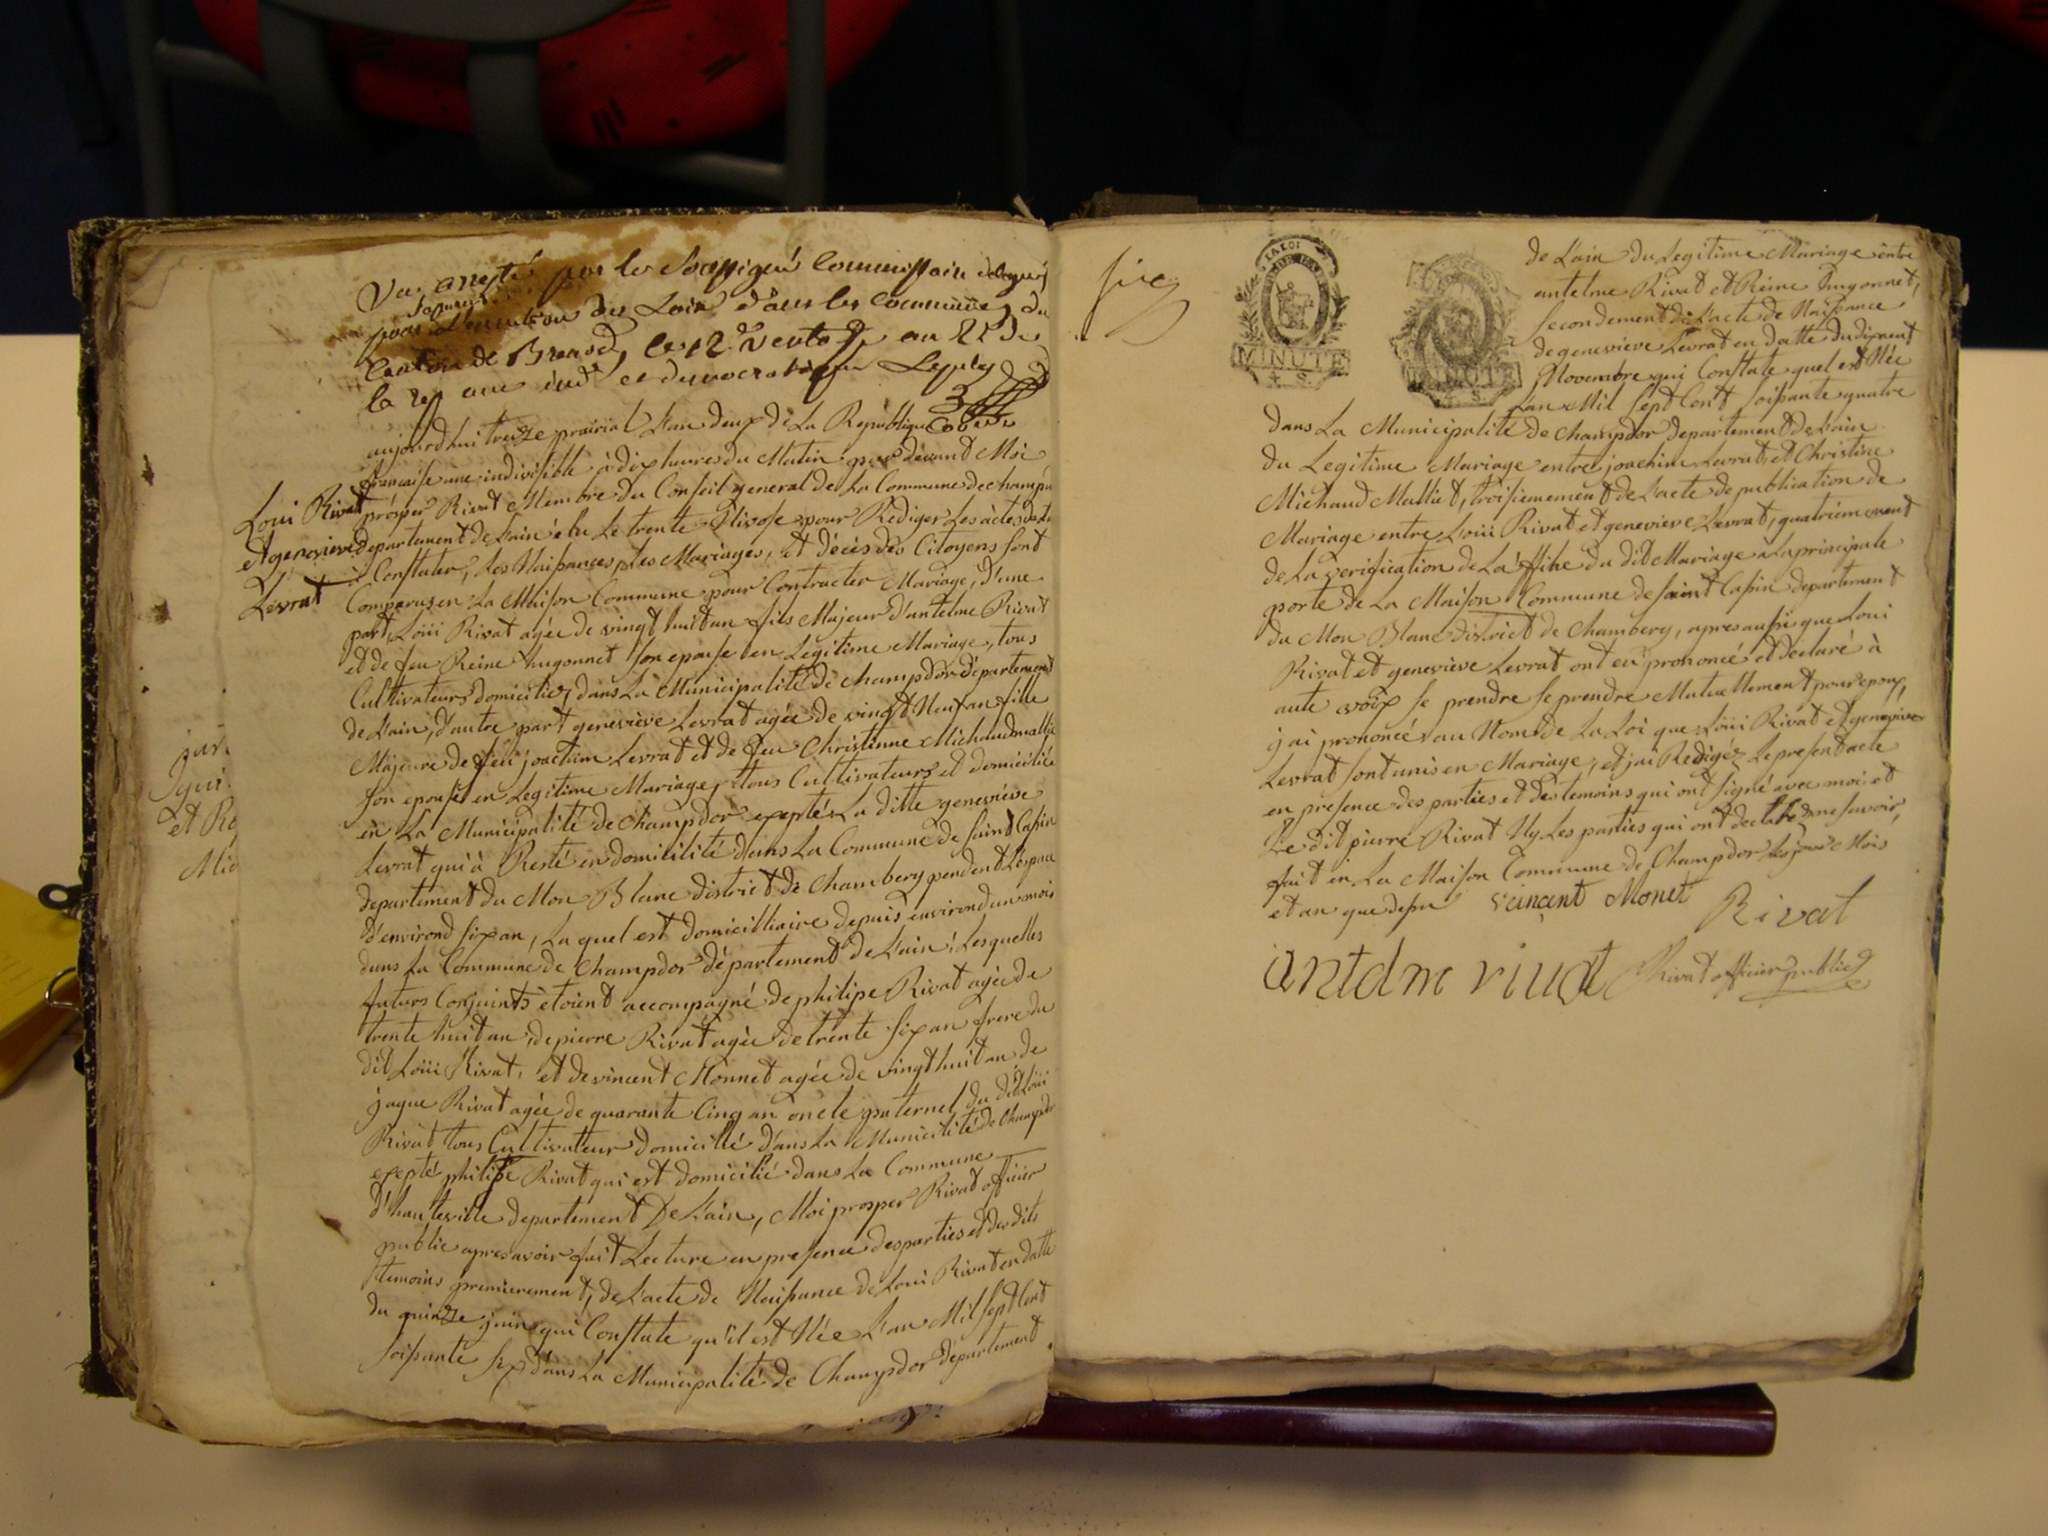 Vu arresté par le Soussigné Commissaire
pour l'execution des Loix dans les Communes du
Canton de Brenod, le 12 Ventose an
la Rep une ind. et democratique
aujourd'hui treize prairial L'an deux de La Republique
francaise une indivisible à dix heures du Matin par devant Moi
prósper Rivat Membre du Conseil general de La Commune de champd
departement de Lain élu Le trente Nivose pour Rediger Les actes
Constater, Les Naissances, Les Mariages, et décès des Citoyens sont
Comparus en La Maison Commune pour Contracter Mariage, d'une
part Loüi Rivat agée de vingt huit an fils Majeur d'antelme Rivat
et de feu Reine hugonnet son epouse en Legitime Mariage, tous
Cultivateurs domiciliez dans La Municipalité de Champdor département
de Lain, d'autre part geneviève Levrat agée de vingt Neuf an fille
Majeure de feu joachim Levrat et de feu Christinne Michaud mallie
son epouse en Legitime Mariage, tous Cultivateurs et domicilié
en La Municipalité de Champdor exepté La ditte geneviève
Levrat qui à Resté en domicilité dans La Commune de saint Cassin
departement du Mon Blanc district de Chambery pendent Lespace
d'environd six an, La quel est domicilliaire depuis environd un mois
dans La Commune de Champdor département de Lain; Lesquelles
futurs Conjuints étoient accompagné de philipe Rivat agée de
trente huit an, de pierre Rivat agée de trente six an frere du
dit Loüi Rivat, et de vincent Monnet agée de vingt huit an de
jaque Rivat agée de quarante Cinq an oncle paternel du dit Loüi
Rivat tous Cultivateur domicillé dans La Municilité de Champdor
exepté philipe Rivat qui est domicilié dans La Commune
d'hauteville departement De Lain, Moi prosper Rivat officier
public apres avoir fait Lecture en presence des parties et des dits
temoins premierement, de Lacte de Naissance de Loui Rivat en datte
du quinze juin qui Constate qu'il est Née L'an Mil sept Cent
soisante six dans La Municipalité de Champdor departement
Loui Rivat
et genevieve
Levrat
jar.
et Re
Mic
LA LOI
MINUTE
de Lain du Legitime Mariage entre
antelme Rivat et Reine hugonnet,
secondement de Lacte de Naissance
de genevieve Levrat en datte du dixneuf
Novembre qui Constate quel est Née
L'an Mil sept Cent soisante quatre
dans La Municipalité de Champdor departement de Lain
du Legitime Mariage entre joachim Levrat, et Christine
Michaud Malliet, troisiemement de Lacte de publication de
Mariage entre Loüi Rivat et genevieve Levrat, quatriemement
de La verification de L'affihe du dit Mariage à La principale
porte de La Maison Commune de saint Cassin departement
du Mon Blanc district de Chambery, apres aussi que Loui
Rivat et genevieve Levrat ont eu prononcé et declaré à
aute voix se prendre se prendre Mutuellement pour epoux,
j'ai prononcé au Nom de La Loi que Loüi Rivat et genevieve
Levrat sont unis en Mariage, et jai Redigéz Le present acte
en presence des parties et des temoins qui ont signé avec moi et
Le dit pierre Rivat Ny Les parties qui ont declaré ne savoir,
fait en La Maison Commune de Champdor Les jour Mois
et an que dessu
vincent Monet
Rivat
antelme rivat
Rivat officier public